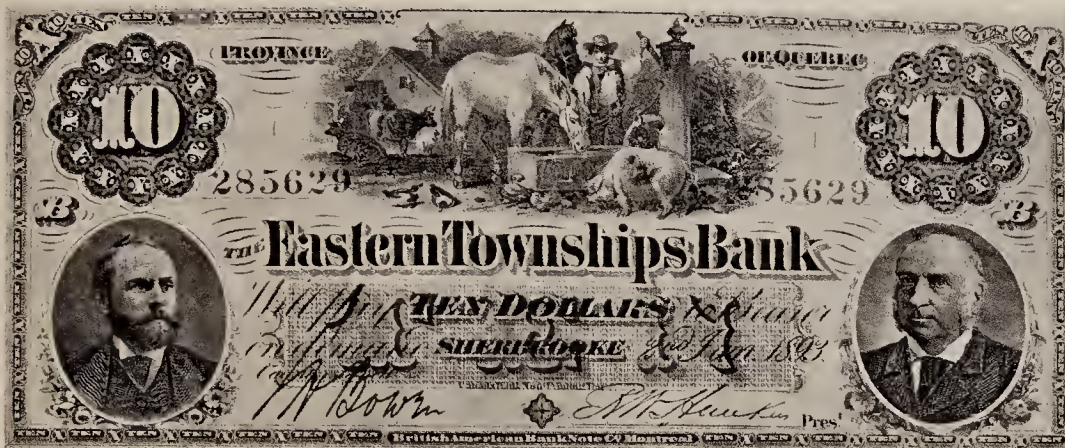 TEN X TEN X TEN X TEN X TEN
PROVINCE OF QUEBEC
10 10
285629 85629
B B
THE Eastern Townships Bank
Will Pay TEN DOLLARS to Bearer
on demand SHERBROOKE 2nd Jan 1893
W Bowen Pres.
British American Bank Note Co. Montreal